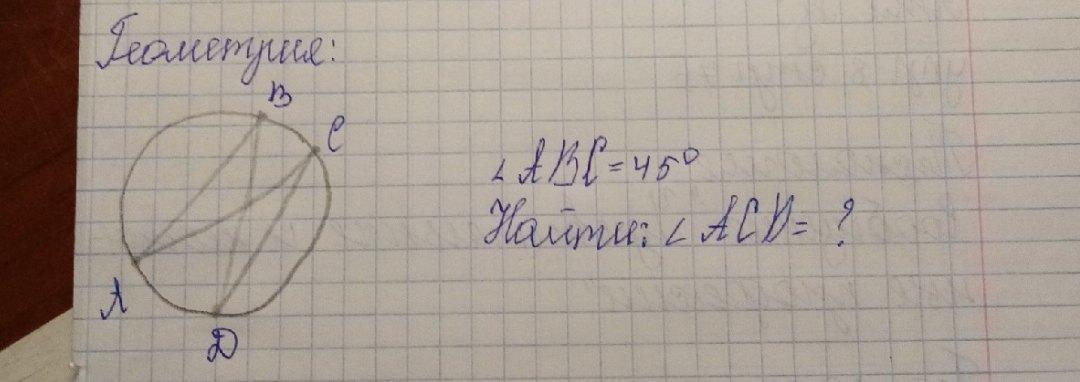 Геометрия:
B
C
∠ABC=45°
Найти: ∠ACD= ?
A
D